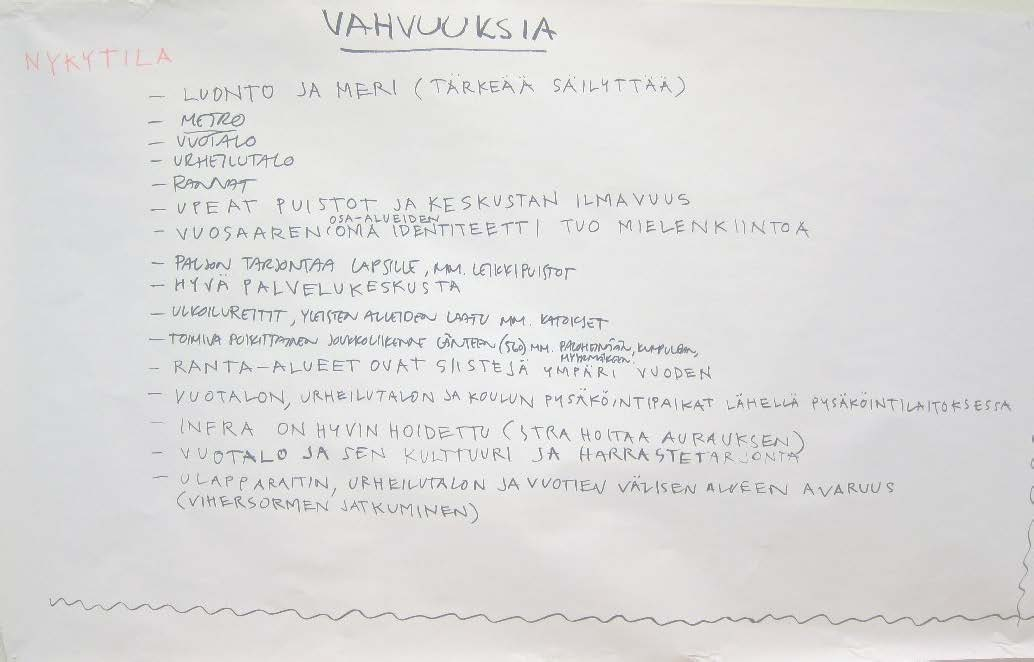 VAHVUUKSIA
NYKYTILA
- LUONTO JA MERI (TÄRKEÄÄ SÄILYTTÄÄ)
- METRO
- VUOTALO
- URHEILUTALO
- RANNAT
- UPEAT PUISTOT JA KESKUSTAN ILMAVUUS
OSA-ALUEIDEN
- VUOSAAREN OMA IDENTITEETTI TUO MIELENKIINTOA
- PALJON TARJONTAA LAPSILLE, MM. LEIKKIPUISTOT
- HYVÄ PALVELUKESKUSTA
- ULKOILUREITIT, YLEISTEN ALUEIDEN LAATU MM. KATOKSET
- TOIMIVA POIKITTAINEN JOUKKOLIIKENNE LÄNTEEN (560) MM. PALOHEINÄÄN, KUMPULAAN,
MYYRMÄKEEN
- RANTA-ALUEET OVAT SIISTEJÄ YMPÄRI VUODEN
- VUOTALON, URHEILUTALON JA KOULUN PYSÄKÖINTIPAIKAT LÄHELLÄ PYSÄKÖINTILAITOKSESSA
- INFRA ON HYVIN HOIDETTU (STRA HOITAA AURAUKSEN)
- VUOTALO JA SEN KULTTUURI JA HARRASTETARJONTA
- ULAPPARAITIN, URHEILUTALON JA VUOTIEN VÄLISEN ALUEEN AVARUUS
(VIHERSORMEN JATKUMINEN)